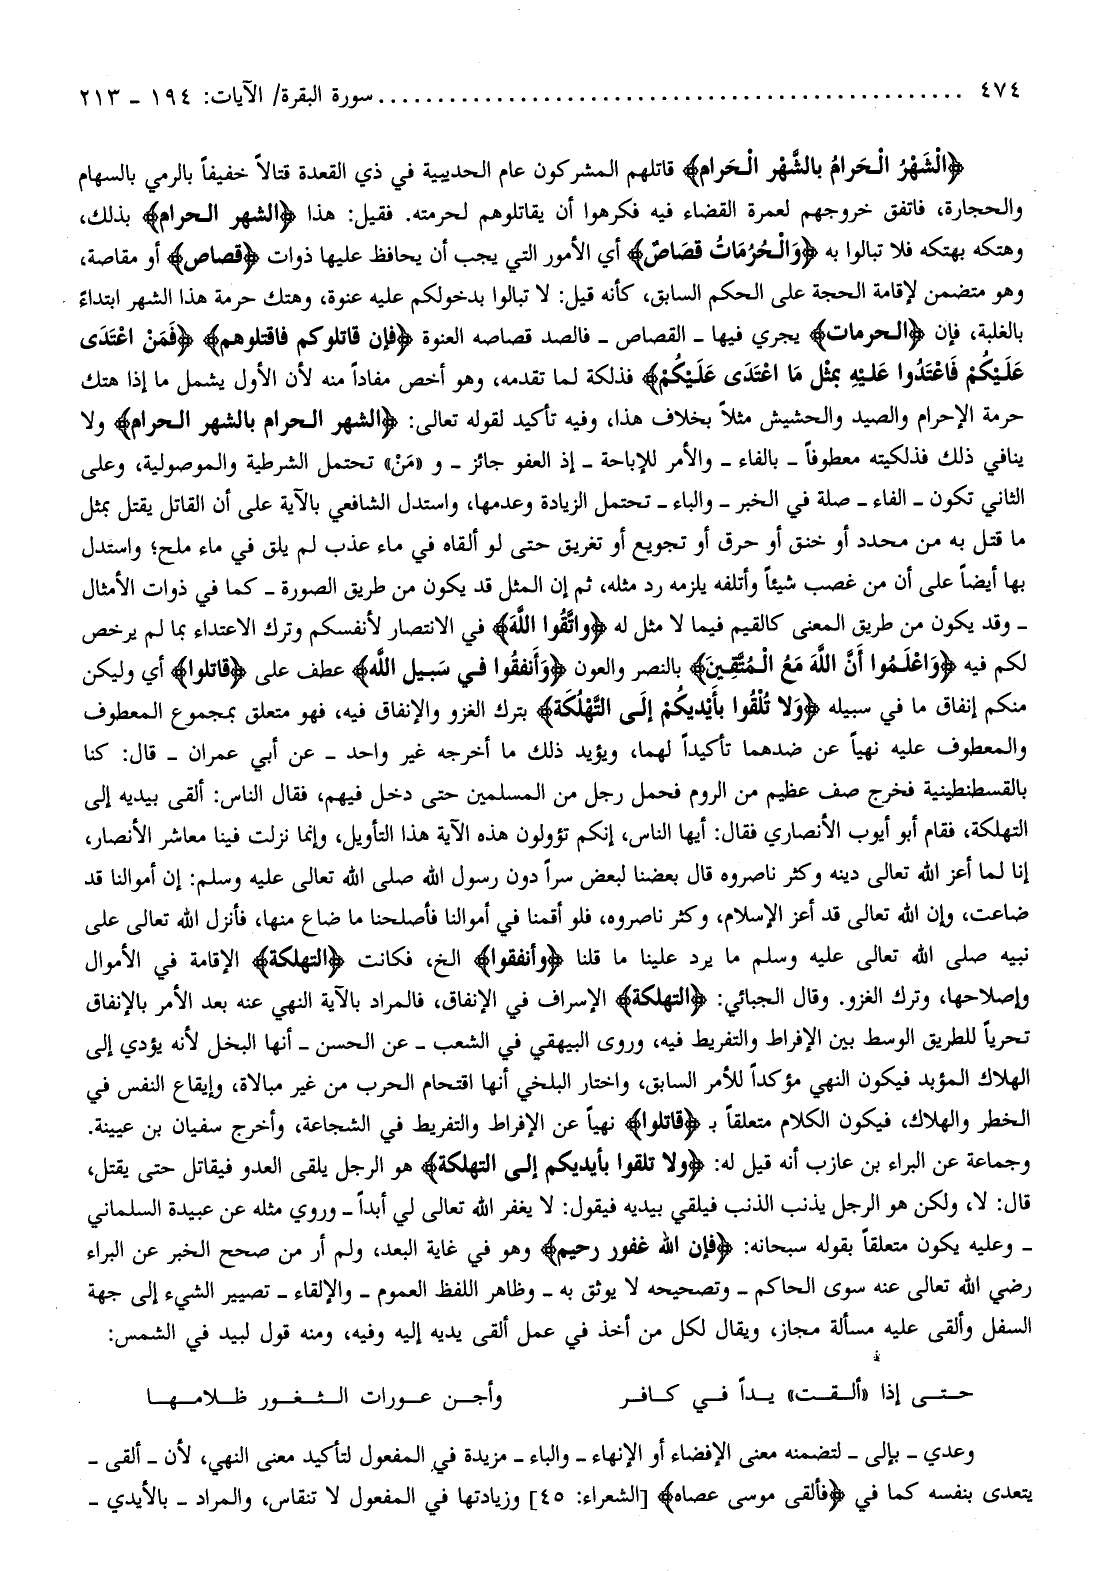 ٤٧٤ ................................................ سورة البقرة/ الآيات: ١٩٤ ـ ٢١٣
﴿الْشَهْرُ الْحَرامُ بالشَّهْر الْحَرام﴾ قاتلهم المشركون عام الحديبية في ذي القعدة قتالاً خفيفاً بالرمي بالسهام
والحجارة، فاتفق خروجهم لعمرة القضاء فيه فكرهوا أن يقاتلوهم لحرمته. فقيل: هذا ﴿الشهر الحرام﴾ بذلك،
وهتكه بهتكه فلا تبالوا به ﴿وَالْحُرُمَاتُ قصَاصٌ﴾ أي الأمور التي يجب أن يحافظ عليها ذوات ﴿قصاص﴾ أو مقاصة،
وهو متضمن لإقامة الحجة على الحكم السابق، كأنه قيل: لا تبالوا بدخولكم عليه عنوة، وهتك حرمة هذا الشهر ابتداءً
بالغلبة، فإن ﴿الحرمات﴾ يجري فيها ـ القصاص ـ فالصد قصاصه العنوة ﴿فإن قاتلوكم فاقتلوهم﴾ ﴿فَمَنْ اعْتَدَى
عَلَيكُمْ فَاعْتَدُوا عَلَيْهِ بمثْل مَا اعْتَدَى عَلَيكُمْ﴾ فذلكة لما تقدمه، وهو أخص مفاداً منه لأن الأول يشمل ما إذا هتك
حرمة الإحرام والصيد والحشيش مثلاً بخلاف هذا، وفيه تأكيد لقوله تعالى: ﴿الشهر الحرام بالشهر الحرام﴾ ولا
ينافي ذلك فذلكيته معطوفاً ـ بالفاء ـ والأمر للإباحة ـ إذ العفو جائز ـ و «مَنْ» تحتمل الشرطية والموصولية، وعلى
الثاني تكون ـ الفاء ـ صلة في الخبر ـ والباء ـ تحتمل الزيادة وعدمها، واستدل الشافعي بالآية على أن القاتل يقتل بمثل
ما قتل به من محدد أو خنق أو حرق أو تجويع أو تغريق حتى لو ألقاه في ماء عذب لم يلق في ماء ملح؛ واستدل
بها أيضاً على أن من غصب شيئاً وأتلفه يلزمه رد مثله، ثم إن المثل قد يكون من طريق الصورة ـ كما في ذوات الأمثال
ـ وقد يكون من طريق المعنى كالقيم فيما لا مثل له ﴿واتَّقُوا اللَّهَ﴾ في الانتصار لأنفسكم وترك الاعتداء بما لم يرخص
لكم فيه ﴿وَاعْلَمُوا أَنَّ اللَّهَ مَعَ الْمُتَّقِينَ﴾ بالنصر والعون ﴿وَأَنفقُوا في سَبيل اللَّه﴾ عطف على ﴿قاتلوا﴾ أي وليكن
منكم إنفاق ما في سبيله ﴿وَلا تُلْقُوا بأَيْديكُمْ إلَى التَّهْلُكَة﴾ بترك الغزو والإنفاق فيه، فهو متعلق بمجموع المعطوف
والمعطوف عليه نهياً عن ضدهما تأكيداً لهما، ويؤيد ذلك ما أخرجه غير واحد ـ عن أبي عمران ـ قال: كنا
بالقسطنطينية فخرج صف عظيم من الروم فحمل رجل من المسلمين حتى دخل فيهم، فقال الناس: ألقى بيديه إلى
التهلكة، فقام أبو أيوب الأنصاري فقال: أيها الناس، إنكم تؤولون هذه الآية هذا التأويل، وإنما نزلت فينا معاشر الأنصار،
إنا لما أعز الله تعالى دينه وكثر ناصروه قال بعضنا لبعض سراً دون رسول الله صلى الله تعالى عليه وسلم: إن أموالنا قد
ضاعت، وإن الله تعالى قد أعز الإسلام، وكثر ناصروه، فلو أقمنا في أموالنا فأصلحنا ما ضاع منها، فأنزل الله تعالى على
نبيه صلى الله تعالى عليه وسلم ما يرد علينا ما قلنا ﴿وأنفقوا﴾ الخ، فكانت ﴿التهلكة﴾ الإقامة في الأموال
وإصلاحها، وترك الغزو. وقال الجبائي: ﴿التهلكة﴾ الإسراف في الإنفاق، فالمراد بالآية النهي عنه بعد الأمر بالإنفاق
تحرياً للطريق الوسط بين الإفراط والتفريط فيه، وروى البيهقي في الشعب ـ عن الحسن ـ أنها البخل لأنه يؤدي إلى
الهلاك المؤبد فيكون النهي مؤكداً للأمر السابق، واختار البلخي أنها اقتحام الحرب من غير مبالاة، وإيقاع النفس في
الخطر والهلاك، فيكون الكلام متعلقاً بـ ﴿قاتلوا﴾ نهياً عن الإفراط والتفريط في الشجاعة، وأخرج سفيان بن عيينة.
وجماعة عن البراء بن عازب أنه قيل له: ﴿ولا تلقوا بأيديكم إلى التهلكة﴾ هو الرجل يلقى العدو فيقاتل حتى يقتل،
قال: لا، ولكن هو الرجل يذنب الذنب فيلقي بيديه فيقول: لا يغفر الله تعالى لي أبداً ـ وروي مثله عن عبيدة السلماني
ـ وعليه يكون متعلقاً بقوله سبحانه: ﴿فإن الله غفور رحيم﴾ وهو في غاية البعد، ولم أر من صحح الخبر عن البراء
رضي الله تعالى عنه سوى الحاكم ـ وتصحيحه لا يوثق به ـ وظاهر اللفظ العموم ـ والإلقاء ـ تصيير الشيء إلى جهة
السفل وألقى عليه مسألة مجاز، ويقال لكل من أخذ في عمل ألقى يديه إليه وفيه، ومنه قول لبيد في الشمس:
حتى إذا «ألقت» يداً في كافر وأجن عورات الثغور ظلامها
وعدي ـ بإلى ـ لتضمنه معنى الإفضاء أو الإنهاء ـ والباء ـ مزيدة في المفعول لتأكيد معنى النهي، لأن ـ ألقى ـ
يتعدى بنفسه كما في ﴿فألقى موسى عصاه﴾ [الشعراء: ٤٥] وزيادتها في المفعول لا تنقاس، والمراد ـ بالأيدي ـ